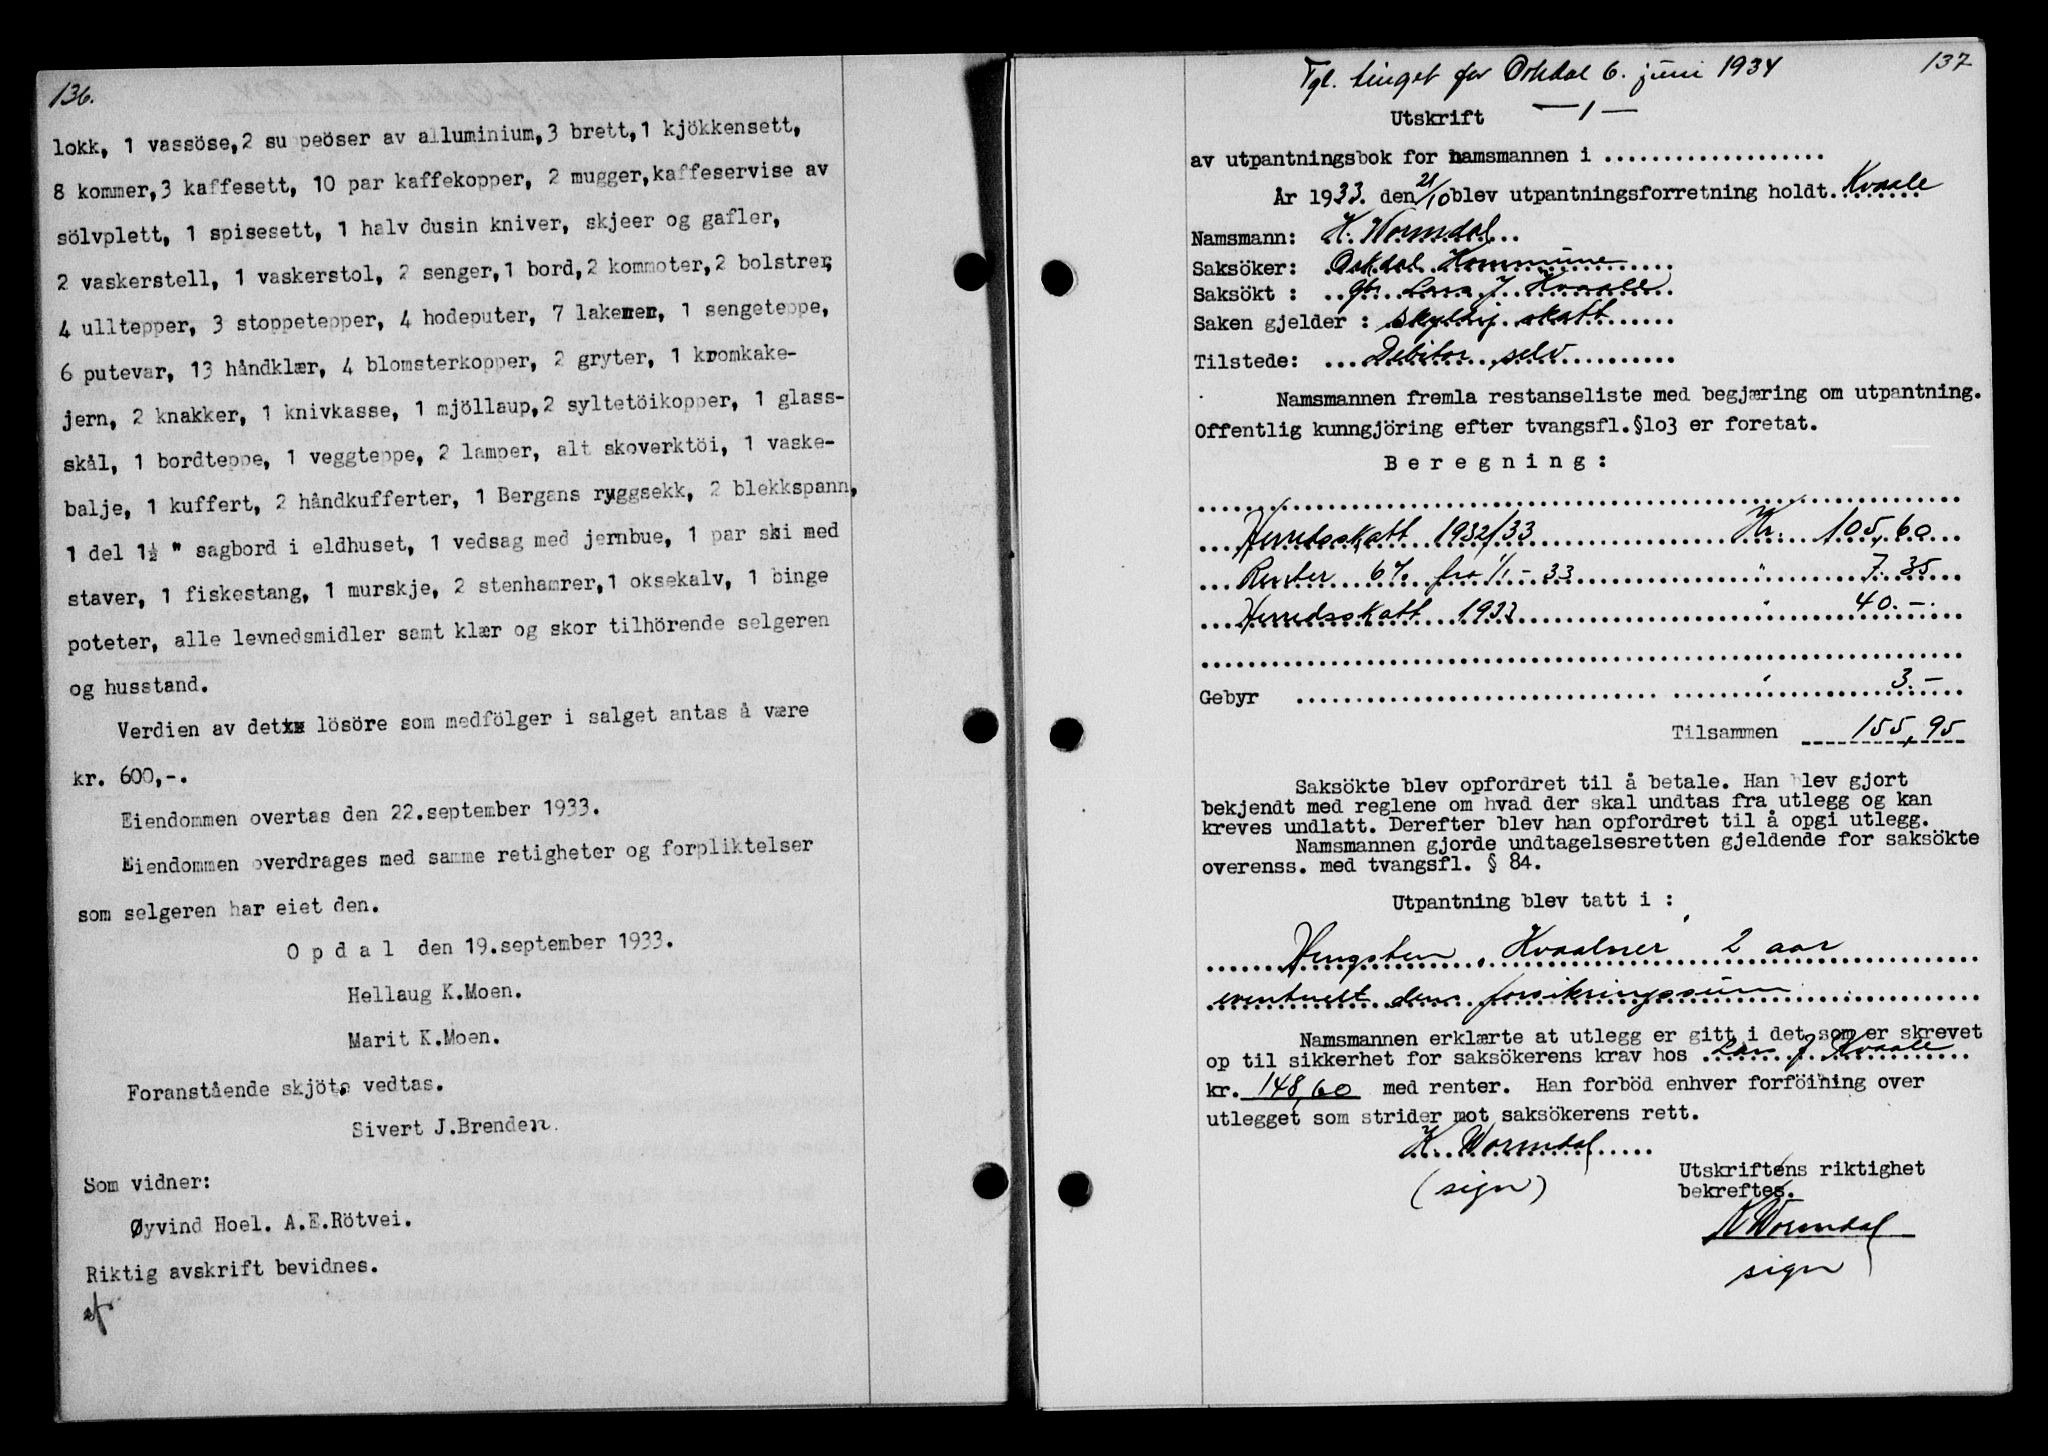 136.
lokk, 1 vassöse, 2 suppeöser av alluminium, 3 brett, 1 kjökkensett,
8 kommer, 3 kaffesett, 10 par kaffekopper, 2 mugger, kaffeservise av
sölvplett, 1 spisesett, 1 halv dusin kniver, skjeer og gafler,
2 vaskerstell, 1 vaskerstol, 2 senger, 1 bord, 2 kommoter, 2 bolstrer,
4 ulltepper, 3 stoppetepper, 4 hodeputer, 7 lakener, 1 sengeteppe,
6 putevar, 13 håndklær, 4 blomsterkopper, 2 gryter, 1 kromkake-
jern, 2 knakker, 1 knivkasse, 1 mjöllaup, 2 syltetöikopper, 1 glass-
skål, 1 bordteppe, 1 veggteppe, 2 lamper, alt skoverktöi, 1 vaske-
balje, 1 kuffert, 2 håndkufferter, 1 Bergans ryggsekk, 2 blekkspann,
1 del 1½ " sagbord i eldhuset, 1 vedsag med jernbue, 1 par ski med
staver, 1 fiskestang, 1 murskje, 2 stenhamrer, 1 oksekalv, 1 binge
poteter, alle levnedsmidler samt klær og skor tilhörende selgeren
og husstand.
Verdien av det lösöre som medfölger i salget antas å være
kr. 600,-.
Eiendommen overtas den 22.september 1933.
Eiendommen overdrages med samme retigheter og forpliktelser
som selgeren har eiet den.
Opdal den 19.september 1933.
Hellaug K.Moen.
Marit K.Moen.
Foranstående skjöte vedtas.
Sivert J.Brenden.
Som vidner:
Øyvind Hoel. A.E.Rötvei.
Riktig avskrift bevidnes.
137
Tgl. tinget for Orkdal 6. juni 1934
Utskrift — 1 —
av utpantningsbok for namsmannen i ....................
År 1933. den 21/10 blev utpantningsforretning holdt. Kvaale
Namsmann: K. Wormdal
Saksöker: Orkdal Kommune
Saksökt : Lars J Kvaale
Saken gjelder : skyldig skatt
Tilstede: Debitor selv
Namsmannen fremla restanseliste med begjæring om utpantning.
Offentlig kunngjöring efter tvangsfl.§103 er foretat.
Beregning:
Herredsskatt 1932/33 Kr. 105,60
Renter 6% fra 1/1 - 33 " 7.35
Herredsskatt 1933 " 40.-
Gebyr " 3.-
Tilsammen 155,95
Saksökte blev opfordret til å betale. Han blev gjort
bekjendt med reglene om hvad der skal undtas fra utlegg og kan
kreves undlatt. Derefter blev han opfordret til å opgi utlegg.
Namsmannen gjorde undtagelsesretten gjeldende for saksökte
overenss. med tvangsfl. § 84.
Utpantning blev tatt i :
Hingsten Kvaalner 2 aar
eventuelt den forsikringssum
Namsmannen erklærte at utlegg er gitt i det som er skrevet
op til sikkerhet for saksökerens krav hos Lars J Kvaale
kr. 148,60 med renter. Han forböd enhver forföining over
utlegget som strider mot saksökerens rett.
K. Wormdal
(sign)
Utskriftens riktighet
bekreftes.
K Wormdal
sign